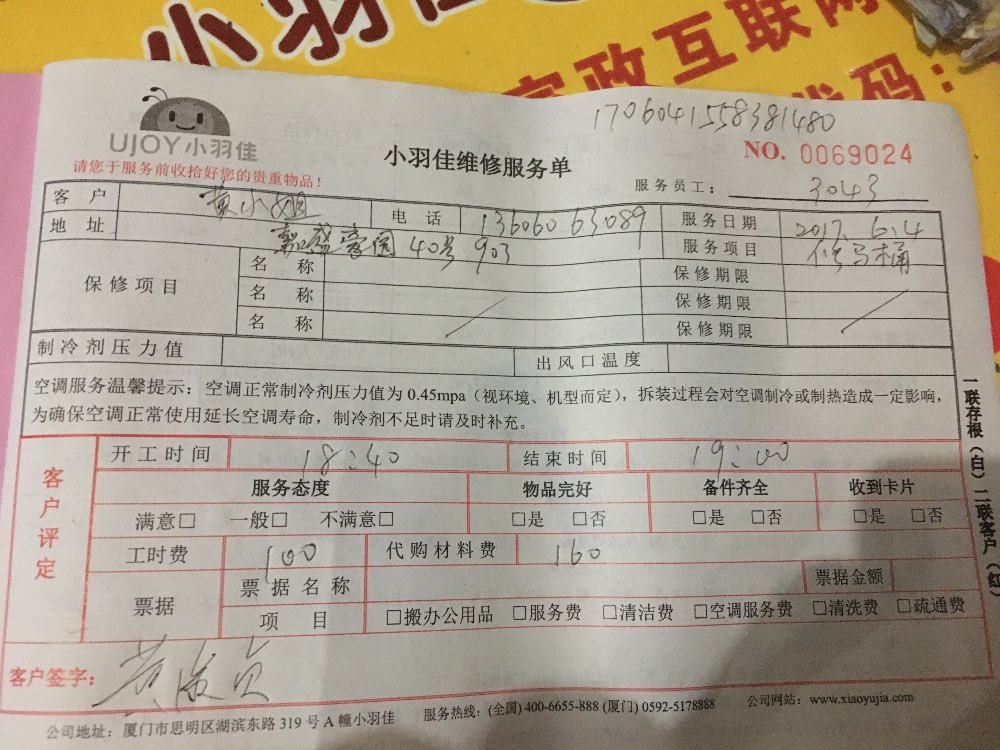 小羽佳
家政互联网
码:
1706041558381480
UJOY小羽佳
小羽佳维修服务单
NO. 0069024
请您于服务前收拾好您的贵重物品!
服务员工: 3043
客 户 黄小姐 电 话 13606063089 服务日期 2017. 6.4
地 址 嘉盛豪园 40号 903 服务项目 修马桶
保修项目 名 称 保修期限
名 称 保修期限
名 称 保修期限
制冷剂压力值 出风口温度
空调服务温馨提示:空调正常制冷剂压力值为 0.45mpa(视环境、机型而定),拆装过程会对空调制冷或制热造成一定影响,
为确保空调正常使用延长空调寿命,制冷剂不足时请及时补充。
客户评定
开工时间 18:40 结束时间 19:00
服务态度 物品完好 备件齐全 收到卡片
满意□ 一般□ 不满意□ □是 □否 □是 □否 □是 □否
工时费 100 代购材料费 160
票据 票据名称 票据金额
项 目 □搬办公用品 □服务费 □清洁费 □空调服务费 □清洗费 □疏通费
客户签字:
公司地址:厦门市思明区湖滨东路 319 号 A 幢小羽佳 服务热线:(全国) 400-6655-888 (厦门) 0592-5178888 公司网站:www.xiaoyujia.com
一联存根(白)二联客户(红)